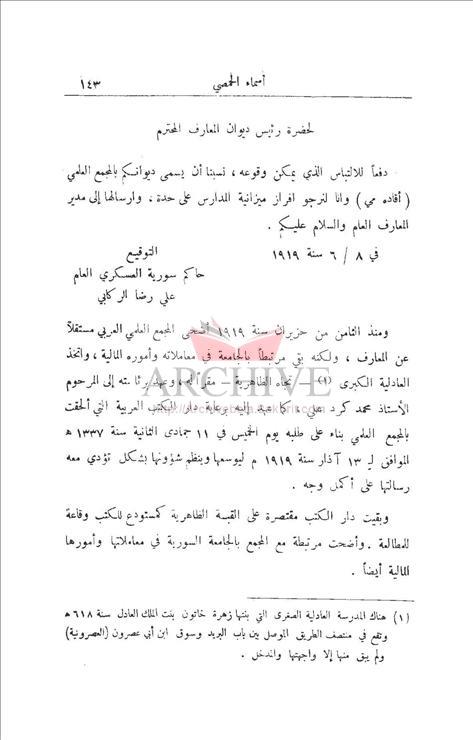 أسماء الحمصي ١٤٣
لحضرة رئيس ديوان المعارف المحترم
دفعاً للالتباس الذي يمكن وقوعه ، نسبنا أن يسمى ديوانكم بالمجمع العلمي
( أقاده مي ) وانا لنرجو افراز ميزانية المدارس على حدة ، وارسالها إلى مدير
المعارف العام والسلام عليكم .
في ٨ / ٦ سنة ١٩١٩ التوقيع
حاكم سورية العسكري العام
علي رضا الركابي
ومنذ الثامن من حزيران سنة ١٩١٩ أضحى المجمع العلمي العربي مستقلاً
عن المعارف ، ولكنه بقي مرتبطاً بالجامعة في معاملاته وأموره المالية ، واتخذ
العادلية الكبرى (١) – تجاه الظاهرية – مقراً له ، وعهد برئاسته إلى المرحوم
الأستاذ محمد كرد علي ، كما عهد إليه برعاية دار الكتب العربية التي ألحقت
بالمجمع العلمي بناء على طلبه يوم الخميس في ١١ جمادى الثانية سنة ١٣٣٧ ه
الموافق لـ ١٣ آذار سنة ١٩١٩ م ليوسعها وينظم شؤونها بشكل تؤدي معه
رسالتها على أكمل وجه .
وبقيت دار الكتب مقتصرة على القبة الظاهرية كمستودع للكتب وقاعة
للمطالعة . وأضحت مرتبطة مع المجمع بالجامعة السورية في معاملاتها وأمورها
المالية أيضاً .
(١) هناك المدرسة العادلية الصغرى التي بنتها زهرة خاتون بنت الملك العادل سنة ٦١٨ ه
وتقع في منتصف الطريق الموصل بين باب البريد وسوق ابن أبي عصرون (العصرونية)
ولم يبق منها إلا واجهتها والمدخل .
ARCHIVE